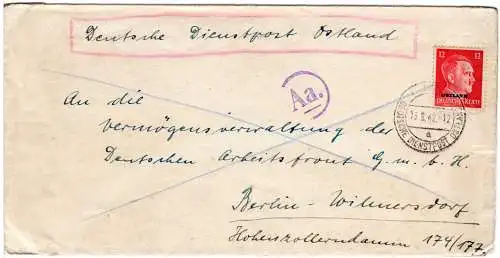 Deutsche Dienstpost Ostland
12 12
OSTLAND
DEUTSCHES REICH
Aa.
An die
Vermögensverwaltung der
Deutschen Arbeitsfront G.m.b.H.
a
DEUTSCHE DIENSTPOST
Berlin-Wilmersdorf
Hohenzollerndamm 174/177